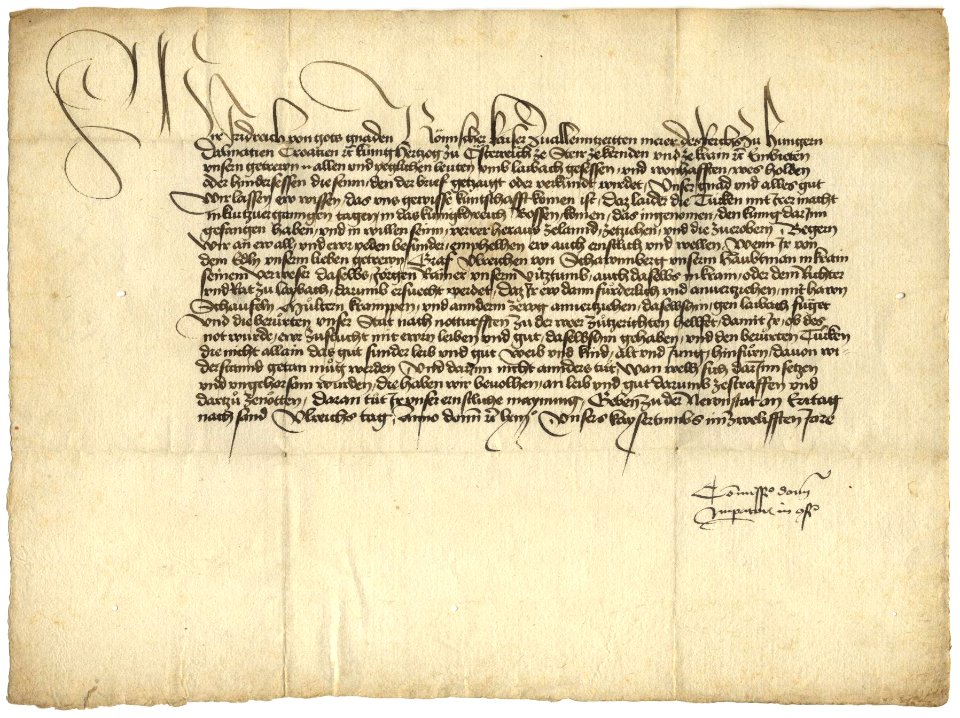 Wir Fridreich von gots gnaden Römischer kaiser zuallenntzeitten merer des Reichs zu Hungern
Dalmatien Croatien &c kunig Hertzog zu Österreich ze Steir ze kernden und ze krain &c Embieten
unsern getrewn n allen und yeglichen leuten umb laibach gesessen und wonhafften, wes holden
oder hindersessen die seinn, den der brief getzaigt oder verkündt wirdet, Unser gnad und alles gut
Wir lassen ew wissen, das uns gewisse kuntschafft komen ist, daz laider die Türken mit irer macht
in kurtzvergangen tagen, in das kunigkhreich Wossen komen, das ingenomen, den kunig darinn
gefangen haben, und in willen seinn, verrer heraus zelannd, zetziehen, und die zuerobern, Begern
wir an ew all, und ewr yeden besunder, emphelhen ew auch ernstlich und wellen, Wenn ir von
dem Edln unserm lieben getrewn, Graf Ulreichen von Schawnnberg unserm haubtman in krain
seinem verweser daselbs, Jorgen Rainer unserm vitztumb, auch daselbs in krain, oder dem Richter
und Rat zu laybach, darumb ersuecht werdet, daz ir ew dann fürderlich und anvertziehen, mit hawn
Schaufeln, Multern, krampen, und anndern zewg annvertziehen, daselbshin, gen laibach füget
und die berürten unser Stat nach notturfften zu der weer zutzerichten helffet, damit ir, ob des
not wurde, ewr zuflucht mit ewrn leiben und gut, daselbshin gehaben, und den berürten Türken
die nicht allain das gut sunder leib und gut weib und kind, alt und Jung, hinfürn, davon wi
derstannd getan müg werden Und darinn nicht annders tut, Wan welh sich darinn setzen
und ungehorsam wurden, die haben wir bevolhen, an leib und gut darumb zestraffen und
dartzu zenötten, Daran tut ir unser ernstliche maynung, Geben zu der Newnstat an Eritag
nach sand Ulreichs tag, Anno domini &c lxiii Unsers kaysertumbs im zwelifften Jare
Commissio domini
Imperatoris in consilio